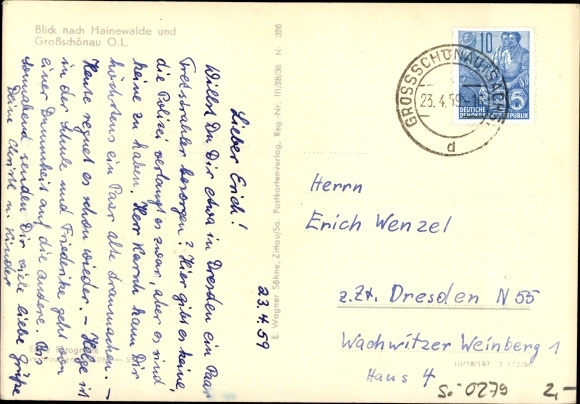 Blick nach Hainewalde und
Großschönau O.L.
23.4.59
Lieber Erich!
Willst Du Dir etwa in Dresden ein Paar
Tretstrahler besorgen? Hier gibt es keine,
die Polizei verlangt es zwar, aber es sind
keine zu haben, Herr Karsch kann Dir
höchstens ein Paar alte dranmachen. –
Heute regnet es schon wieder. – Helge ist
in der Schule und Friederike geht von
einer Dummheit auf die andere. Bis
Sonnabend senden Dir viele liebe Grüße
Deine Christl u. Kinder
E. Wagner Söhne, Zittau/Sa. Postkartenverlag, Reg.-Nr. III/28/38 N 396
10
5
DEUTSCHE DEMOKRATISCHE REPUBLIK
GROSSSCHÖNAU (SACHS)
23.4.59
d
Herrn
Erich Wenzel
z.Zt. Dresden N 55
Wachwitzer Weinberg 1
Haus 4
III/18/197
S-0279
2,-